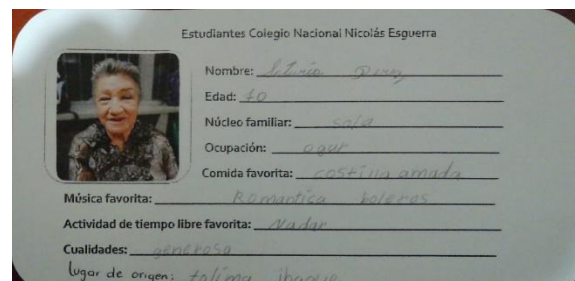 Estudiantes Colegio Nacional Nicolás Esguerra
Nombre: Liliria Perez
Edad: 70
Núcleo familiar: sola
Ocupación: ogar
Comida favorita: costilla amada
Música favorita: Romantica boleros
Actividad de tiempo libre favorita: Nadar
Cualidades: generosa
lugar de origen: tolima ibague